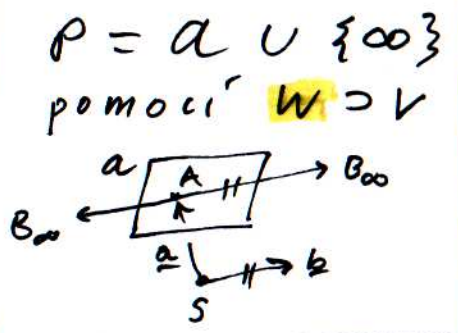 P = a ∪ {∞}
pomocí W ⊃ V
a A B∞
B∞
a b
S